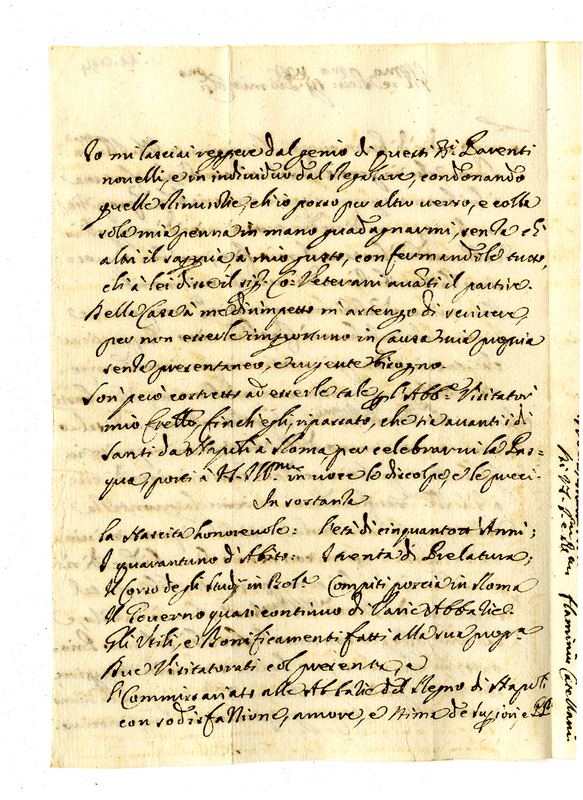 Io mi lasciai reggere dal genio di questi Parenti
novelli, e in individuo dal condonando
quelle ch'io posso per altro verso, e colla
sola mia penna in mano guadagnarmi, senza ch'
altri il sappia à mio gusto, confermandole tutto,
ch'à lei disse il Sig.r Co: Veterani avanti il partire.
Della Casa à me dirimpetto m'astengo di scrivere,
per non esserle importuno in Causa mia propria
senza presentaneo, e urgente bisogno.
Son però costretto ad esserle tale Visitator
mio finch'egli, ripassato, che sia avanti i dì
Santi da Napoli à Roma, per celebrarvi la Pas=
qua, porti à in voce le discolpe, e le preci.
In sostanza
La Nascita honorevole: L'età di cinquantott'Anni;
I quarantuno d'Abito: I trenta di Prelatura;
Il Corso degli Studj in Compiti poscia in Roma
Il Governo quasi continuo di Varie Abbatie.
Gli Utili, e Bonificamenti fatti alla sua propr.a
Due Visitatorati col presente, e
l'Commissariati alle Abbatie del Regno di Napoli
con sodisfattione, amore, e stima de
Flaminio